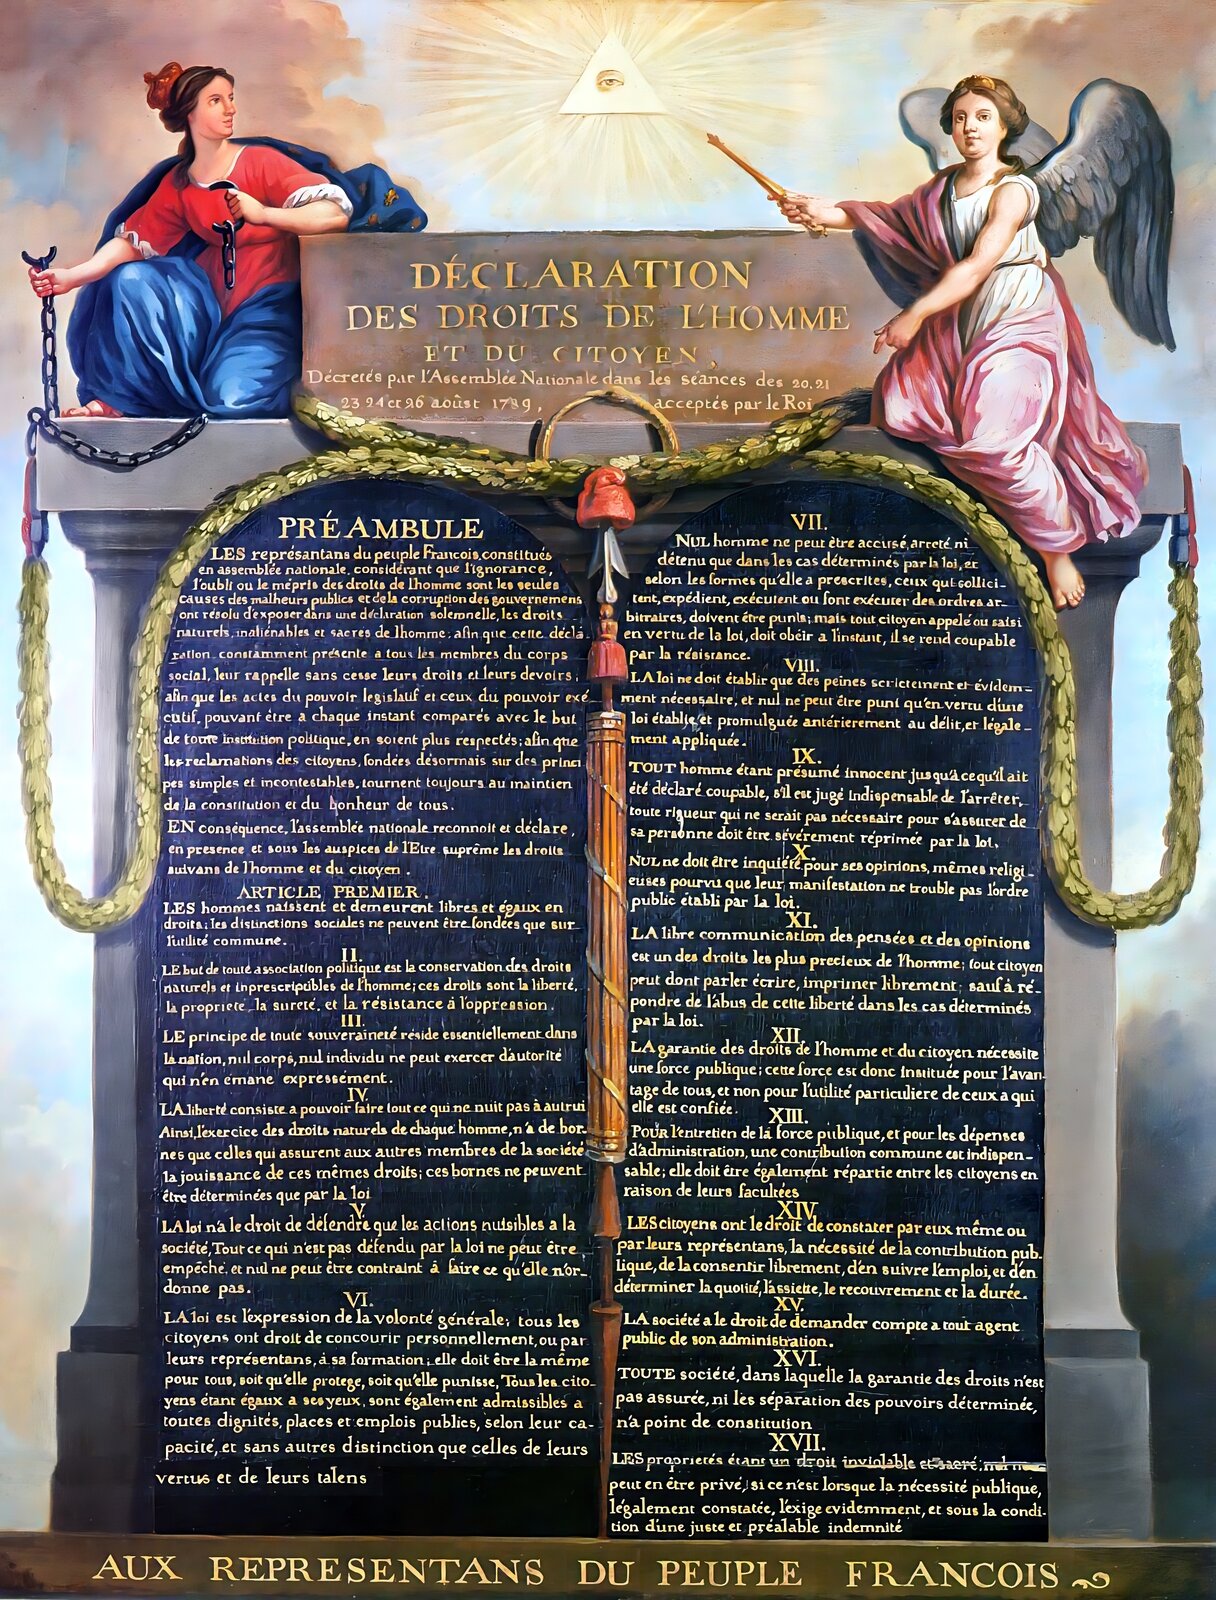 DÉCLARATION
DES DROITS DE L'HOMME
ET DU CITOYEN,
Décretés par l'Assemblée Nationale dans les séances des 20.21
23.24 et 26 aoûst 1789, acceptés par le Roi
PRÉAMBULE
LES représantans du peuple Francois, constitués
en assemblée nationale, considérant que l'ignorance,
l'oubli ou le mépris des droits de l'homme sont les seules
causes des malheurs publics et de la corruption des gouvernemens
ont résolu d'exposer dans une déclaration solemnelle, les droits
naturels, inaliénables et sacrés de l'homme; afin que cette décla
ration, constamment présente a tous les membres du corps
social, leur rappelle sans cesse leurs droits et leurs devoirs;
afin que les actes du pouvoir legislatif et ceux du pouvoir exé
cutif, pouvant être a chaque instant comparés avec le but
de toute institution politique, en soient plus respectés; afin que
les reclamations des citoyens, fondées désormais sur des princi
pes simples et incontestables, tournent toujours au maintien
de la constitution et du bonheur de tous.
EN conséquence, l'assemblée nationale reconnoit et déclare,
en presence et sous les auspices de l'Etre suprême les droits
suivans de l'homme et du citoyen.
ARTICLE PREMIER.
LES hommes naissent et demeurent libres et égaux en
droits; les distinctions sociales ne peuvent être fondées que sur
l'utilité commune.
II.
LE but de toute association politique est la conservation des droits
naturels et inprescriptibles de l'homme; ces droits sont la liberté,
la propriete, la sureté, et la résistance à l'oppression.
III.
LE principe de toute souveraineté réside essentiellement dans
la nation, nul corps, nul individu ne peut exercer d'autorité
qui n'en émane expressément.
IV.
LA liberté consiste a pouvoir faire tout ce qui ne nuit pas à autrui
Ainsi, l'exercice des droits naturels de chaque homme, n'a de bor-
nes que celles qui assurent aux autres membres de la société
la jouissance de ces mêmes droits; ces bornes ne peuvent
être déterminées que par la loi
V.
LA loi n'a le droit de défendre que les actions nuisibles a la
société, Tout ce qui n'est pas défendu par la loi ne peut être
empêché, et nul ne peut être contraint à faire ce qu'elle n'or-
donne pas.
VI.
LA loi est l'expression de la volonté générale; tous les
citoyens ont droit de concourir personnellement, ou par
leurs représentans, à sa formation; elle doit être la même
pour tous, soit qu'elle protege, soit qu'elle punisse, Tous les cito-
yens étant égaux a ses yeux, sont également admissibles a
toutes dignités, places et emplois publics, selon leur ca-
pacité, et sans autres distinction que celles de leurs
vertus et de leurs talens
VII.
NUL homme ne peut être accusé, arreté ni
détenu que dans les cas déterminés par la loi, et
selon les formes qu'elle a prescrites, ceux qui sollici-
tent, expédient, exécutent ou font exécuter des ordres ar-
bitraires, doivent être punis; mais tout citoyen appelé ou saisi
en vertu de la loi, doit obéir a l'instant, il se rend coupable
par la résistance.
VIII.
LA loi ne doit établir que des peines scrictement et évidem-
ment nécessaire, et nul ne peut être puni qu'en vertu d'une
loi établie, et promulguée antérierement au délit, et légale-
ment appliquée.
IX.
TOUT homme étant présumé innocent jusqu'a ce qu'il ait
été déclaré coupable, s'il est jugé indispensable de l'arrêter,
toute rigueur qui ne serait pas nécessaire pour s'assurer de
sa personne doit être sévérement réprimée par la loi.
X.
NUL ne doit être inquiété pour ses opinions, mêmes religi-
euses pourvu que leur manifestation ne trouble pas l'ordre
public établi par la loi.
XI.
LA libre communication des pensées et des opinions
est un des droits les plus precieux de l'homme; tout citoyen
peut dont parler écrire, imprimer librement; sauf à ré-
pondre de l'abus de cette liberté dans les cas déterminés
par la loi.
XII.
LA garantie des droits de l'homme et du citoyen nécessite
une force publique; cette force est donc instituée pour l'avan-
tage de tous, et non pour l'utilité particuliere de ceux a qui
elle est confiée.
XIII.
POUR l'entretien de la force publique, et pour les dépenses
d'administration, une contribution commune est indispen-
sable; elle doit être également répartie entre les citoyens en
raison de leurs facultées
XIV.
LES citoyens ont le droit de constater par eux même ou
par leurs représentans, la nécessité de la contribution pub-
lique, de la consentir librement, d'en suivre l'emploi, et d'en
déterminer la quotité, l'assiette, le recouvrement et la durée.
XV.
LA société a le droit de demander compte a tout agent
public de son administration.
XVI.
TOUTE société, dans laquelle la garantie des droits n'est
pas assurée, ni les séparation des pouvoirs déterminée,
n'a point de constitution
XVII.
LES proprietés étant un droit inviolable et sacré, nul ne
peut en être privé, si ce n'est lorsque la nécessité publique,
légalement constatée, l'exige evidemment, et sous la condi-
tion d'une juste et préalable indemnité
AUX REPRESENTANS DU PEUPLE FRANCOIS